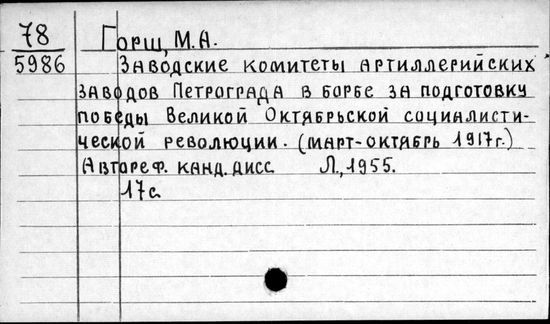 78 Горш, М.А.
5986 Заводские комитеты артиллерийских
заводов Петрограда в борбе за подготовку
победы Великой Октябрьской социалисти-
ческой революции. (март-октябрь 1917г.)
Автореф. канд. дисс Л., 1955.
17с.